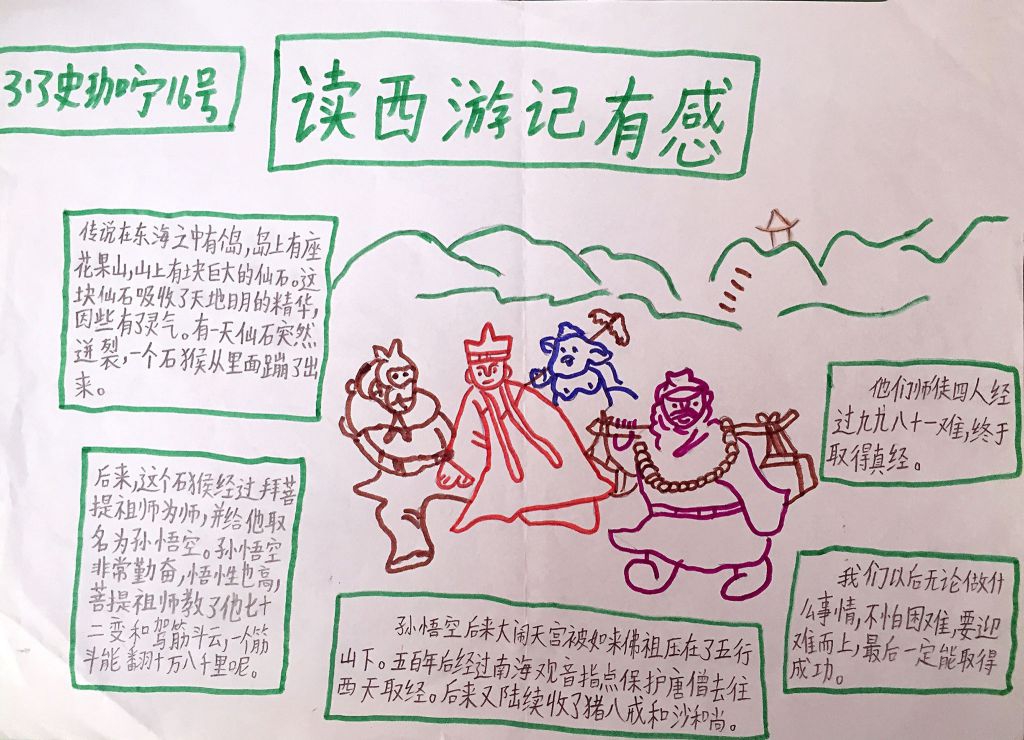 3.3史珈咛16号
读西游记有感
传说在东海之中有个岛,岛上有座
花果山,山上有块巨大的仙石。这
块仙石吸收了天地日月的精华,
因些有了灵气。有一天仙石突然
迸裂,一个石猴从里面蹦了出
来。
后来,这个石猴经过拜菩
提祖师为师,并给他取
名为孙悟空。孙悟空
非常勤奋,悟性也高,
菩提祖师教了他七十
二变和驾筋斗云,一个筋
斗能翻十万八千里呢。
孙悟空后来大闹天宫被如来佛祖压在了五行
山下。五百年后经过南海观音指点保护唐僧去往
西天取经。后来又陆续收了猪八戒和沙和尚。
他们师徒四人经
过九九八十一难,终于
取得真经。
我们以后无论做什
么事情,不怕困难,要迎
难而上,最后一定能取得
成功。